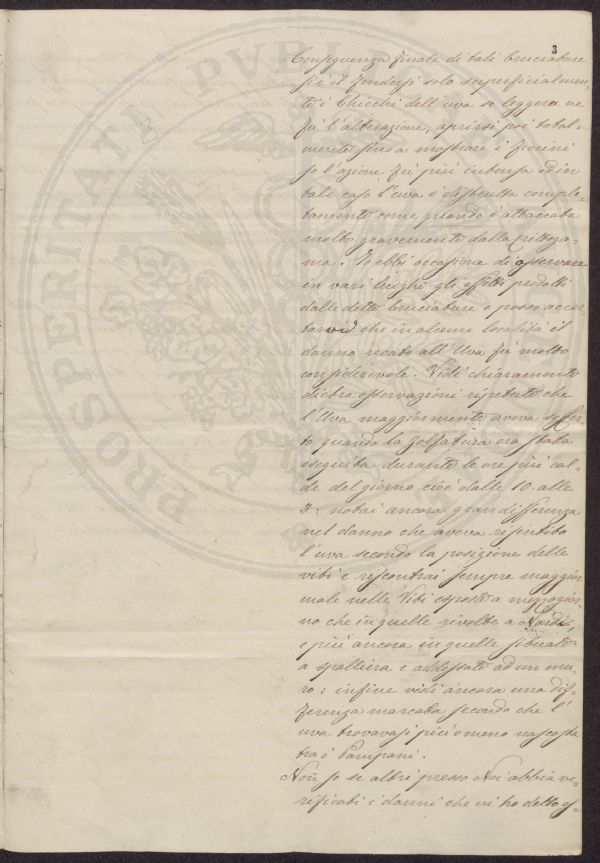 3
Conseguenza finale di tali bruciature
si è il fendersi solo superficialmen-
te i Chicchi dell'uva se leggera ne
fu l'alterazione, aprirsi poi total-
mente sino a mostrare i fiocini
se l'azione fu più intensa ed in
tali caso l'uva è distrutta comple-
tamente come quando è attaccata
molto gravemente dalla crittoga-
ma. Io ebbi occasione di osservare
in vari luoghi gli effetti prodotti
dalle dette bruciature e posso accer-
tarvi che in alcune località il
danno recato all'Uva fu molto
considerevole. Vidi chiaramente
dietro osservazioni ripetute che
l'Uva maggiormente aveva soffer-
to quando la zolfatura era stata
eseguita durante le ore più cal-
de del giorno cioè dalle 10. alle
3: notai ancora gran differenza
nel danno che aveva risentito
l'uva secondo la posizione delle
viti e riscontrai sempre maggior
male nelle Viti esposte a mezzogior-
no che in quelle rivolte a Nord
e più ancora in quelle situate
a spalliera e addossate ad un mu-
ro: infine vidi ancora una dif-
ferenza marcata secondo che l'
uva trovavasi più o meno nascosta
tra i Pampani.
Non so se altri presso Noi abbia ve-
rificati i danni che vi ho detto es-
PROSPERITATI PUBL